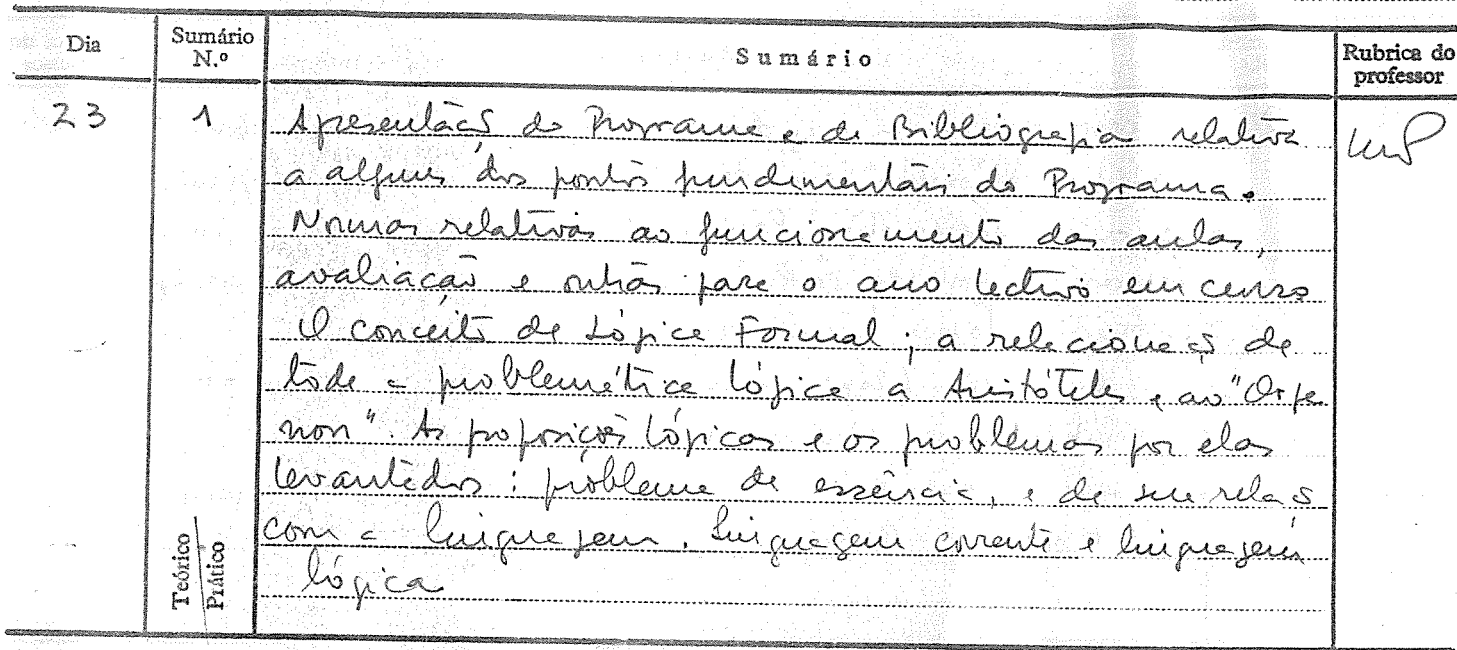 Dia
Sumário N.º
Sumário
Rubrica do professor
23
1
Apresentação do Programa e da Bibliografia relativa
a alguns dos pontos fundamentais do Programa.
Normas relativas ao funcionamento das aulas,
avaliação e outras para o ano lectivo em curso
O conceito de Lógica Formal; a relacionação de
toda a problemática lógica a Aristóteles e ao "Orga
non". As proposições lógicas e os problemas por elas
levantados: problema da essência, e da sua relação
com a linguagem. Linguagem corrente e linguagem
lógica
Teórico
Prático